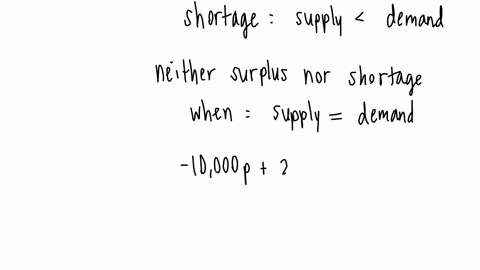 shortage : supply < demand
neither surplus nor shortage
when : supply = demand
-10,000p + 2